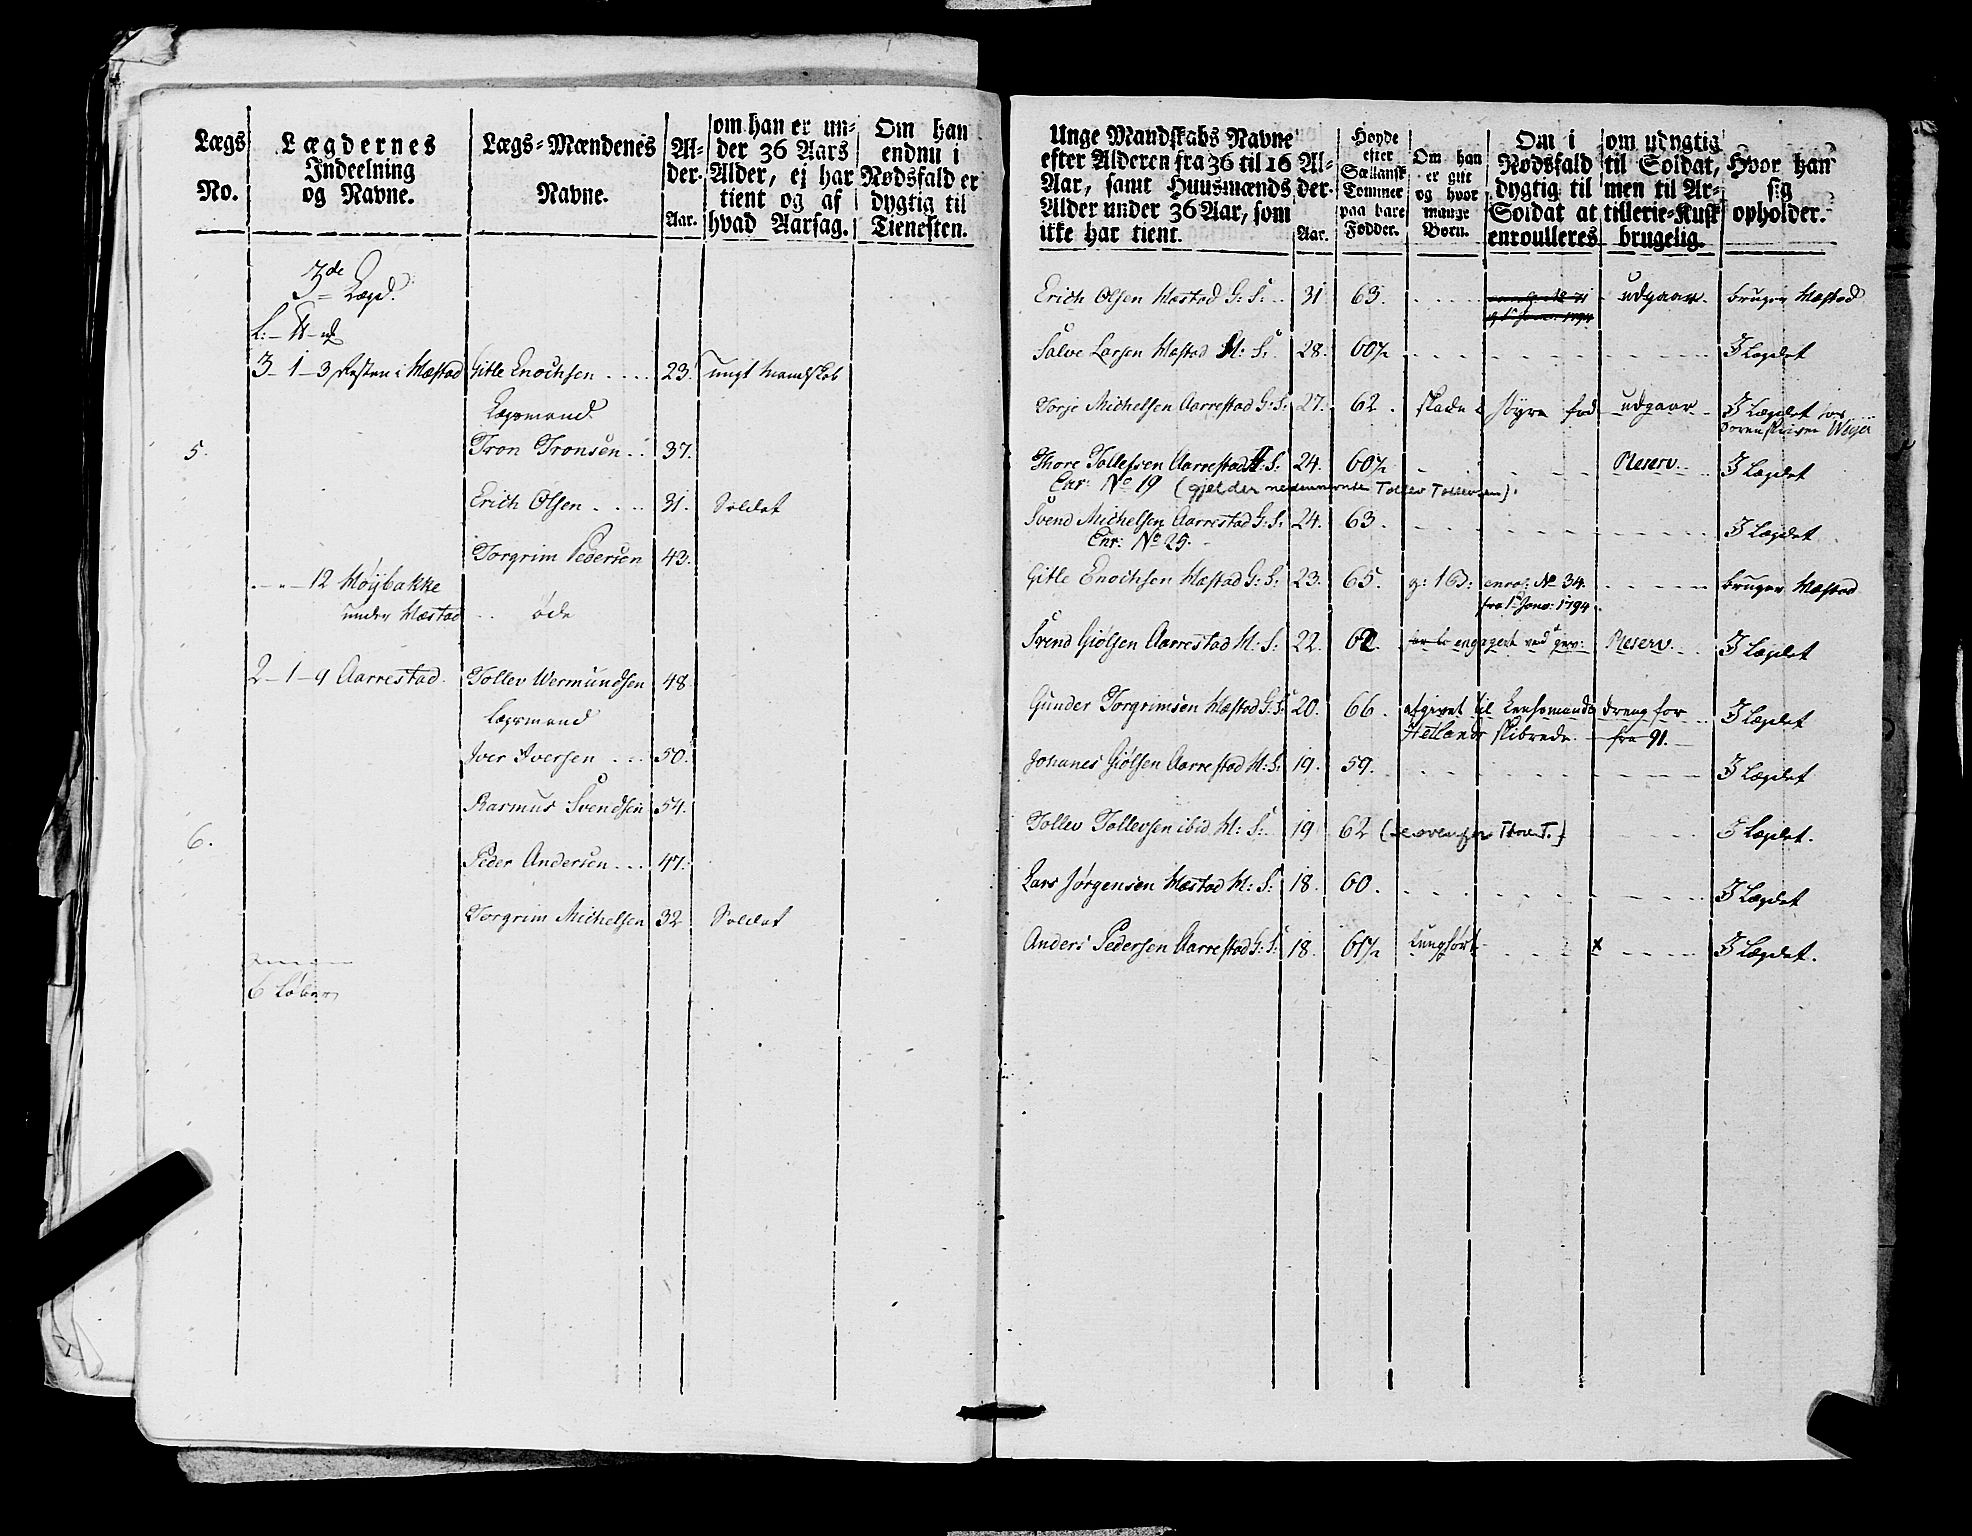 Lægs No.
Lægdernes Indeelning og Navne.
Lægs-Mændenes Navne.
Alder. Aar.
om han er under 36 Aars Alder, ej har tient og af hvad Aarsag.
Om han endnu i Nødsfald er dygtig til Tienesten.
3de Lægd.
3 - 1 - 3 Resten i Mæstad Gitle Enochsen 23. ungt Mandskab
Lægsmand
5. Tron Tronsen 37.
Erich Olsen 31. Soldat
Torgrim Pedersen 43.
12 Høybakke
under Mæstad øde
2 - 1 - 9 Aarrestad Tollev Wermundsen 48
Lægsmand
Iver Iversen 50.
Rasmus Svendsen 54.
6.
Peder Andersen 47.
Torgrim Michelsen 32 Soldat
6 Løber
Unge Mandskabs Navne efter Alderen fra 36 til 16 Aar, samt Huusmænds Alder under 36 Aar, som ikke har tient.
Alder. Aar.
Høyde efter Sællansk Tommer paa bare Fødder.
Om han er gift og hvor mange Børn.
Om i Nødsfald dygtig til Soldat at enroulleres
om udygtig til Soldat, men til Artillerie-Kusk brugelig.
Hvor han sig opholder.
Erich Olsen Mæstad G: S: 31 63. udgaar bruger Mæstad
Salve Larsen Mæstad H: S: 28. 60½ I Lægdet
Torje Michelsen Aarrestad G: S: 27. 62. skade i høyre fod udgaar I Lægdet hos
Sorenskriver Weyer
Thore Tollefsen Aarrestad H: S: 24. 60½ Reserv. I Lægdet
Enr: No 19 (gjelder nedennevnte Tollev Tollevsen).
Svend Michelsen Aarrestad G: S: 24. 63. I Lægdet
Enr: No 25.
Gitle Enochsen Mæstad G: S: 23. 65. g: 1 S: enrol: No 34. bruger Mæstad
fra 1te Janv: 1794.
Svend Giølsen Aarrestad H: S: 22. 62. engagert ved gev: Reserv. I Lægdet
Gunder Torgrimsen Mæstad G: S: 20. 66. afgivet til Lensmands dreng for I Lægdet
Hetlands skibrede fra 91.
Johanes Giølsen Aarrestad H: S: 19. 59. I Lægdet
Tollev Tollevsen ibid. H: S: 19 62 (se ovenfor Thore T.) I Lægdet.
Lars Jørgensen Mæstad H: S: 18. 60. I Lægdet
Anders Pedersen Aarrestad G: S: 18. 61½ tunghørt x I Lægdet.